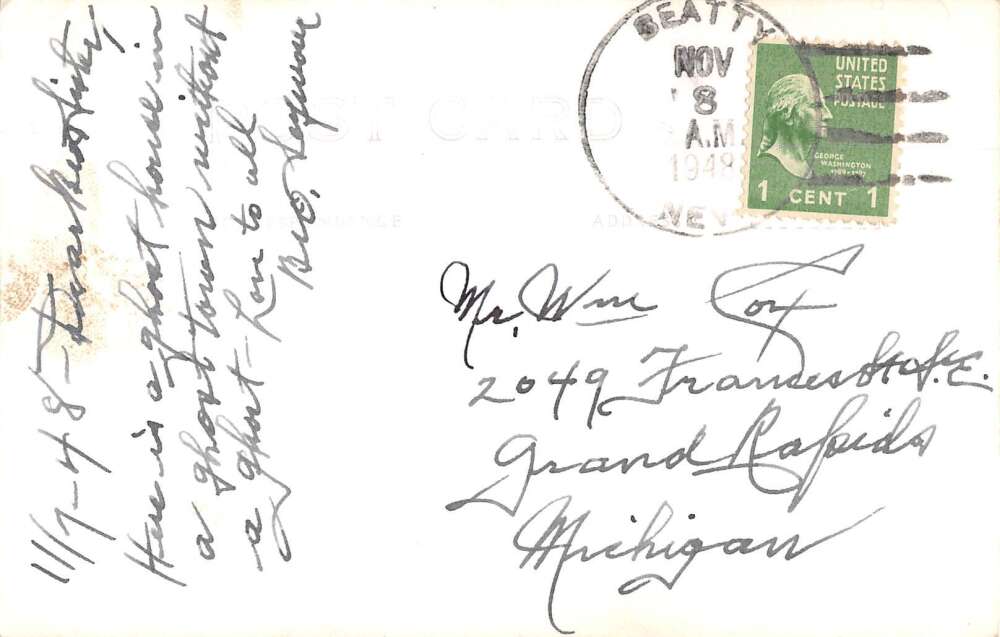 11/7-48- Dear Bro & Sister,
Here is a ghost house in
a ghost town without
a ghost- Love to all
Bro.
POST CARD
CORRESPONDENCE
ADDRESS
BEATTY
NOV
8
A.M.
1948
NEV.
UNITED
STATES
POSTAGE
GEORGE
WASHINGTON
1789-1797
1 CENT 1
Mr. Wm Cox
2049 Frances St. S.E.
Grand Rapids
Michigan